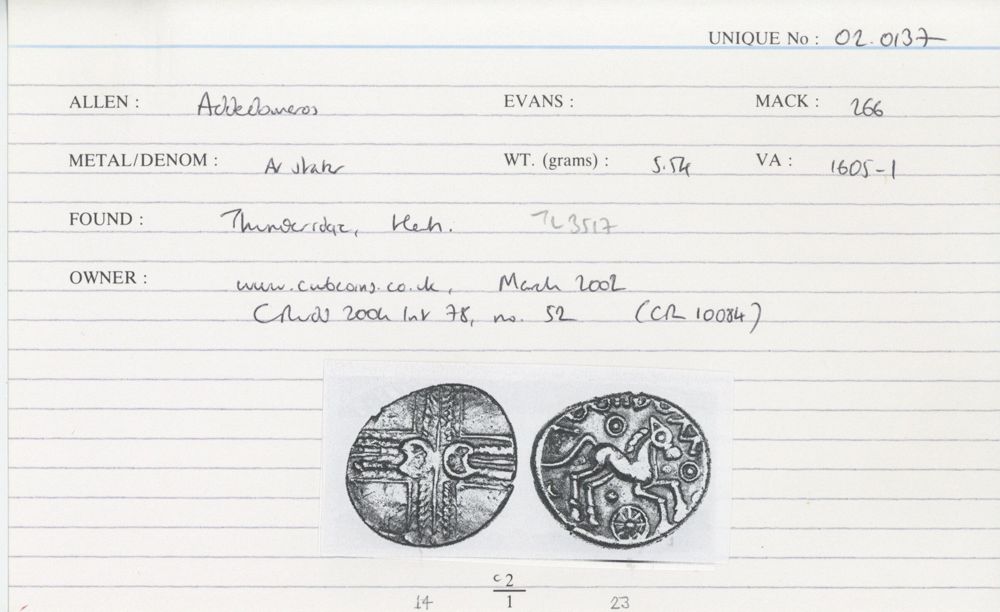 UNIQUE No : 02.0137
ALLEN : Addedomaros EVANS : MACK : 266
METAL/DENOM : AV stater WT. (grams) : 5.54 VA : 1605-1
FOUND : Thundridge, Herts. TL 3517
OWNER : www.cubcoins.co.uk, March 2002
2004 78, no. 52 (CR 10084)
c2
14 1 23